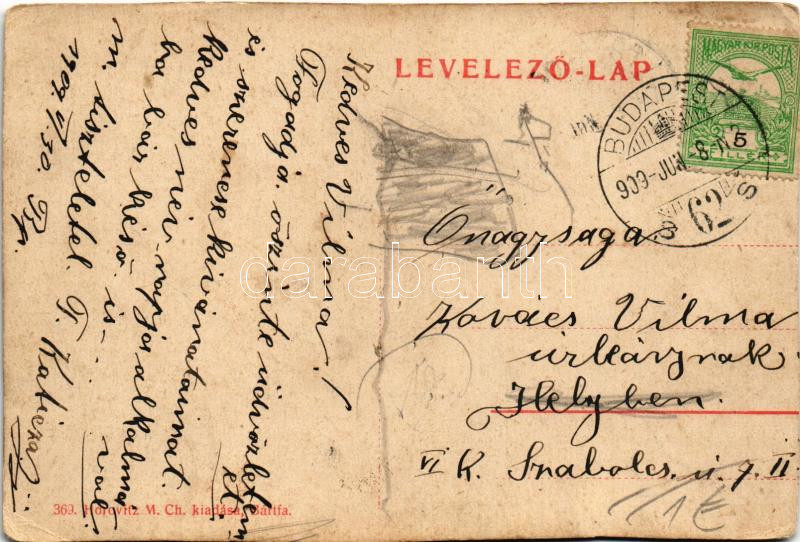 LEVELEZŐ-LAP
MAGYAR KIR. POSTA
5
FILLÉR
BUDAPEST
909-JUN
8-N
62
S
Kedves Vilma!
Fogadja őszinte üdvözletem
és szerencse kivánataimat
kedves név napja alkalmá
ból bár késő is.
m. tisztelettel T. Katicza
1909 VI/30. Bp.
Őnagysága
Kovács Vilma
urleánynak
Helyben.
VI K. Szabolcs u. 7. II
1€
369. Horovitz M. Ch. kiadása, Bártfa.
darabanth